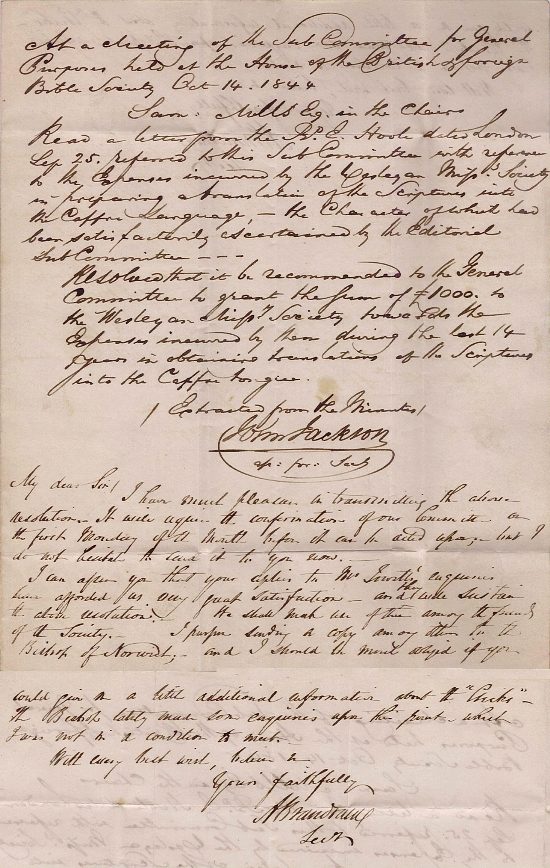 At a Meeting of the Sub Committee for General
Purposes held at the House of the British & foreign
Bible Society Oct 14. 1844
Saml: Mills Esq. in the Chair
Read a letter from the Revd. E. Hoole dated London
Sep 25. referred to this Sub Committee with reference
to the Expenses incurred by the Wesleyan Missy. Society
in preparing a translation of the Scriptures into
the Caffre Language, – the Character of which had
been satisfactorily ascertained by the Editorial
Sub Committee – – –
Resolved that it be recommended to the General
Committee to grant the sum of £1000. to
the Wesleyan Missy Society towards the
Expenses incurred by them during the last 14
years in obtaining translations of the Scriptures
into the Caffre tongue.
/ Extracted from the Minutes /
John Jackson
for: Secy
My dear Sir /
I have much pleasure in transmitting the above
resolution. It will require the confirmation of our Committee on
the first Monday of the Month before it can be acted upon, but I
do not hesitate to send it to you now. –
I can assure you that your replies to Mr enquiries
have afforded us very great satisfaction – and they will sustain
the above resolution. – We shall make use of them among the friends
of the Society. – I purpose sending a copy among them to the
Bishop of Norwich, – and I should be much obliged if you
could give me a little additional information about the "Creeks" –
the Bishop lately made some enquiries upon this point – which
I was not in a condition to meet. –
With every best wish, believe me
Yours faithfully
A Brandram
Secy